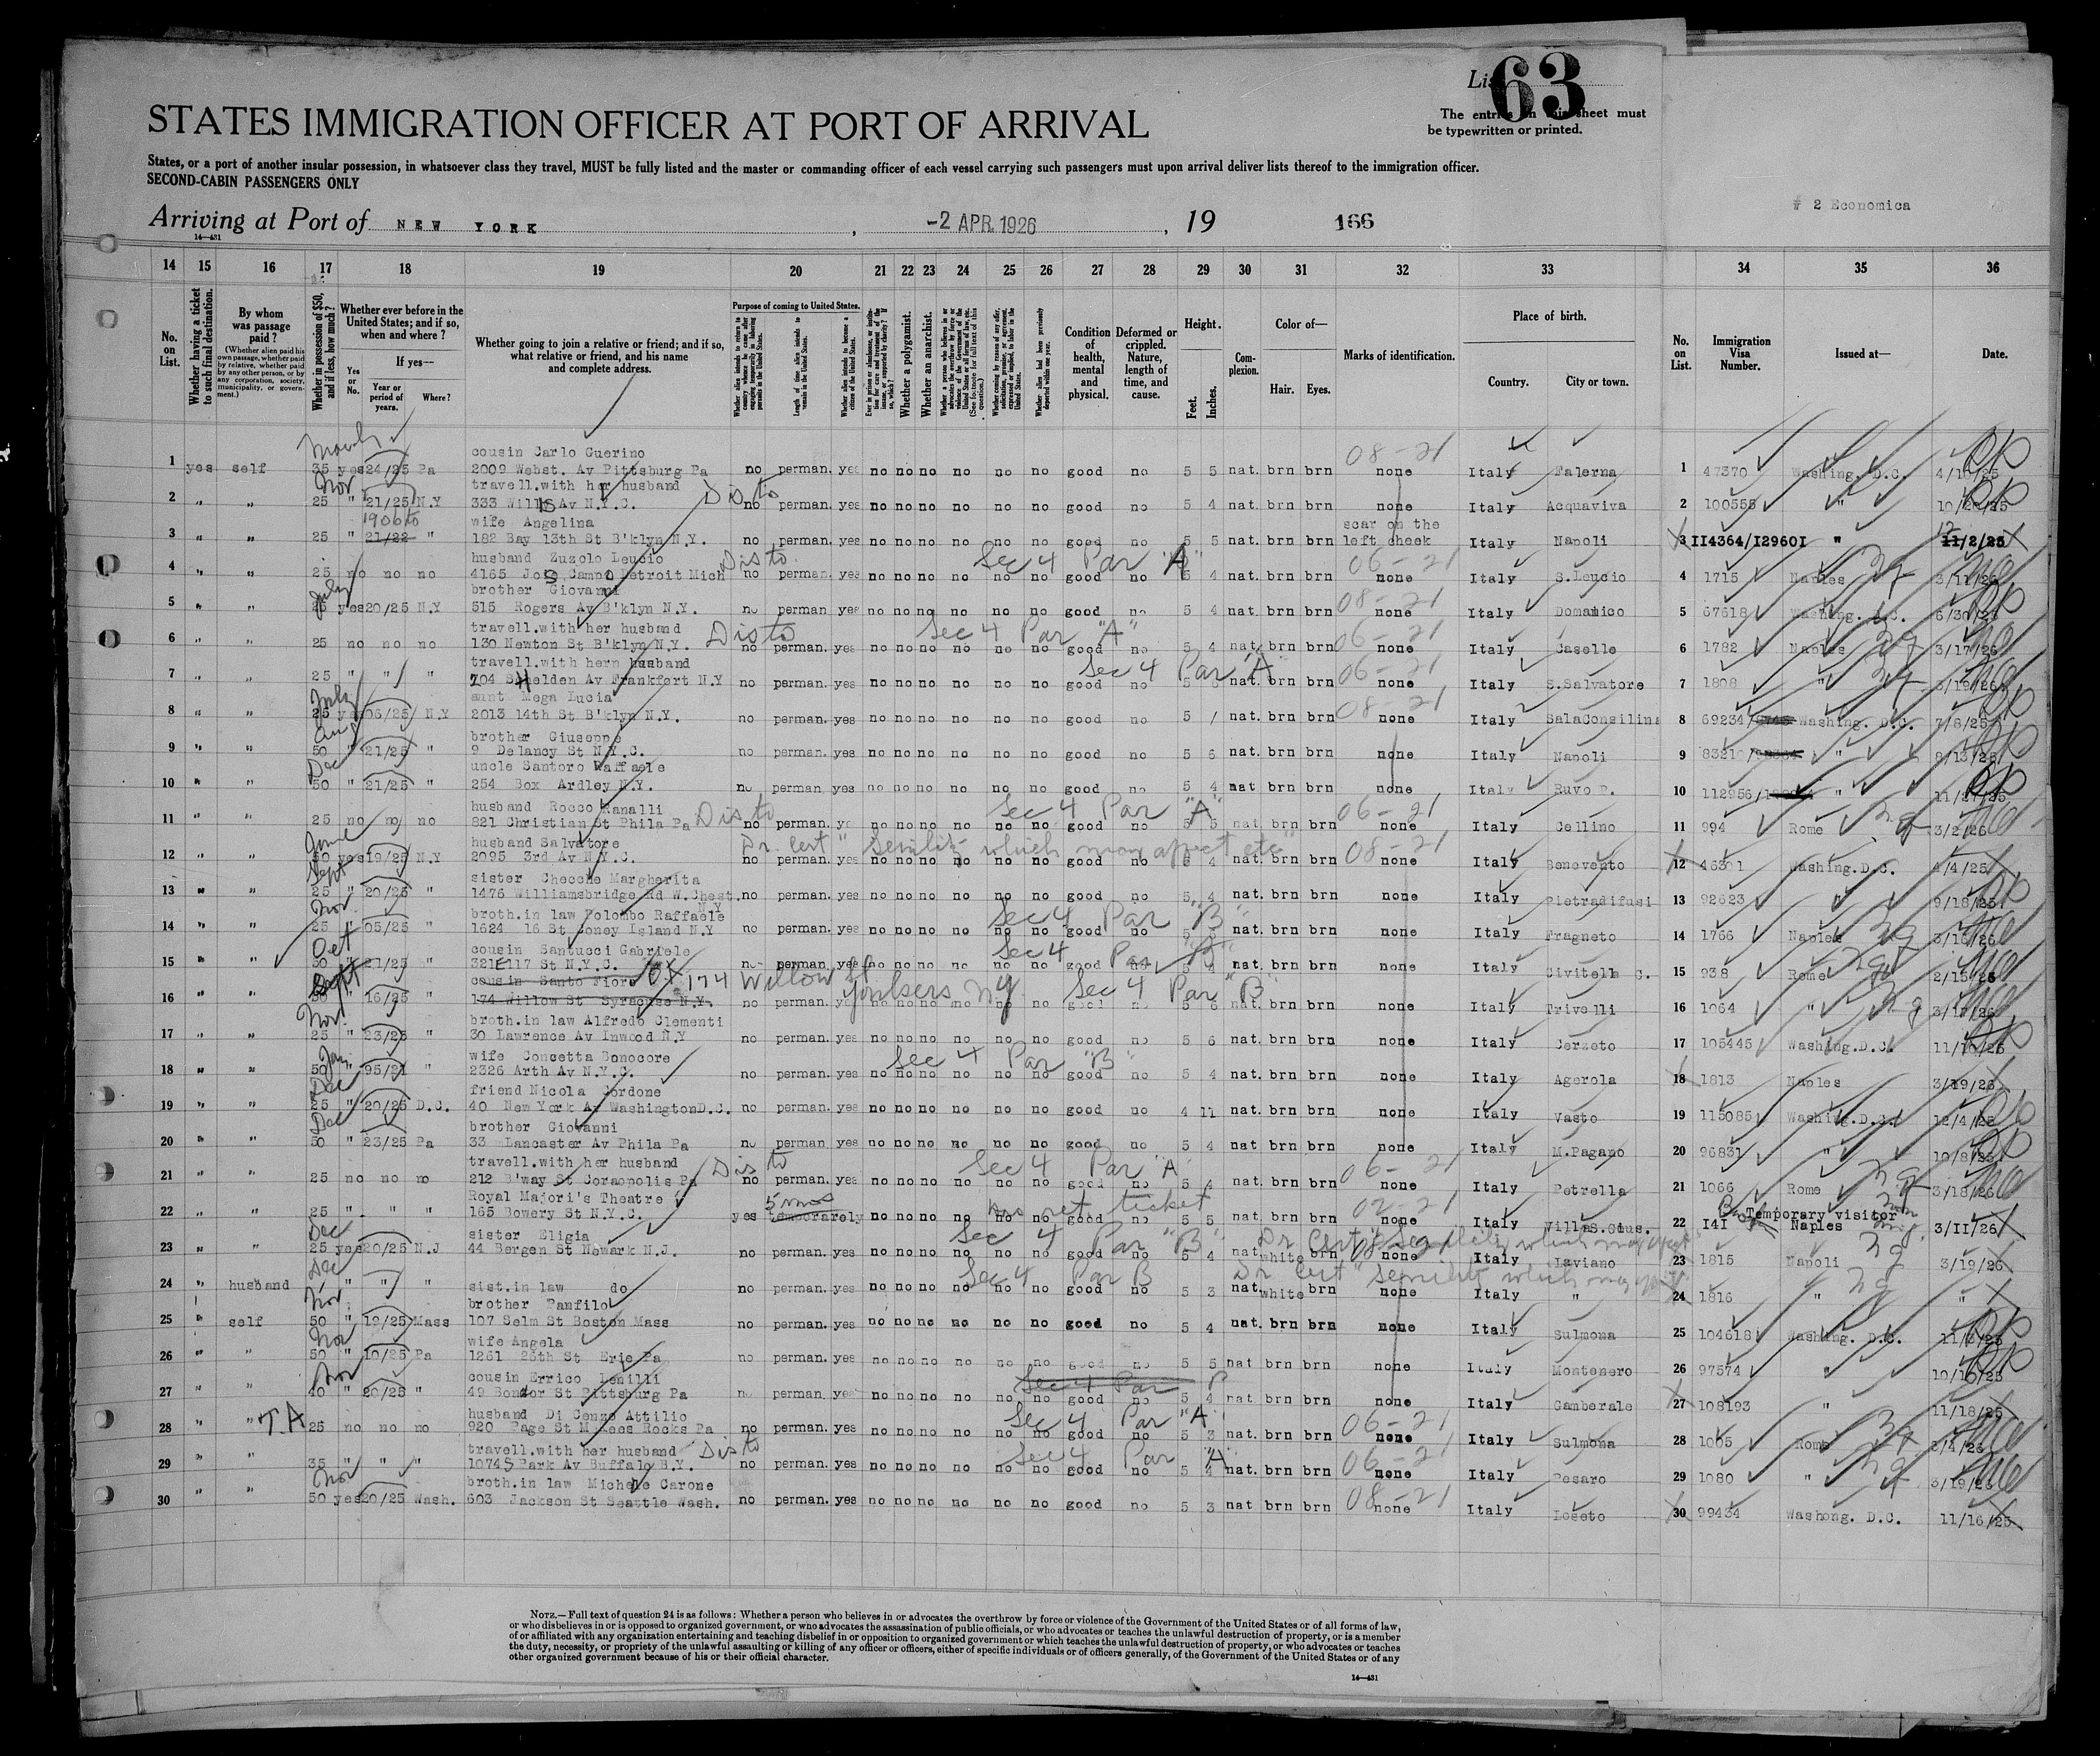 List 63
The entries on this sheet must
be typewritten or printed.
STATES IMMIGRATION OFFICER AT PORT OF ARRIVAL
States, or a port of another insular possession, in whatsoever class they travel, MUST be fully listed and the master or commanding officer of each vessel carrying such passengers must upon arrival deliver lists thereof to the immigration officer.
SECOND-CABIN PASSENGERS ONLY
# 2 Economica
Arriving at Port of NEW YORK, -2 APR. 1926, 19 166
14—431
14 15 16 17 18 19 20 21 22 23 24 25 26 27 28 29 30 31 32 33 34 35 36
No. on List.
Whether having a ticket to such final destination.
By whom was passage paid?
(Whether alien paid his own passage, whether paid by relative, whether paid by any other person, or by any corporation, society, municipality, or government.)
Whether in possession of $50, and if less, how much?
Whether ever before in the United States; and if so, when and where?
Yes or No.
If yes—
Year or period of years.
Where?
Whether going to join a relative or friend; and if so, what relative or friend, and his name and complete address.
Purpose of coming to United States.
Length of time alien intends to remain in the United States.
Whether alien intends to become a citizen of the United States.
Whether a polygamist.
Whether an anarchist.
Condition of health, mental and physical.
Deformed or crippled. Nature, length of time, and cause.
Height.
Feet. Inches.
Complexion.
Color of—
Hair. Eyes.
Marks of identification.
Place of birth.
Country. City or town.
No. on List.
Immigration Visa Number.
Issued at—
Date.
March 08-21
cousin Carlo Guerino
1 yes self 35 yes 24/25 Pa 2009 Webst. Av Pittsburg Pa no perman. yes no no no no no no good no 5 5 nat. brn brn none Italy Falerna 1 47370 Washing. D.C. 4/10/25
Nov travell.with her husband Dis to
2 " " 25 " 21/25 N.Y 333 Willis Av N.Y.C. no perman. yes no no no no no no good no 5 4 nat. brn brn none Italy Acquaviva 2 100555 " 10/20/25
1906 to wife Angelina scar on the
3 " " 25 " 21/22 " 182 Bay 13th St B'klyn N.Y. no perman. yes no no no no no no good no 5 5 nat. brn brn left cheek Italy Napoli 3 II4364/I2960I " 11/2/25
husband Zuzolo Leucio Dis to Sec 4 Par "A" 06-21
4 " " 25 no no no 4165 Jos Campo Detroit Mich no perman. yes no no no no no no good no 5 4 nat. brn brn none Italy S.Leucio 4 1715 Naples 3/11/26
July brother Giovanni 08-21
5 " " 25 yes 20/25 N.Y 515 Rogers Av B'klyn N.Y. no perman. yes no no no no no no good no 5 4 nat. brn brn none Italy Domanico 5 67618 Washing. D.C. 6/30/25
travell.with her husband Dis to Sec 4 Par "A" 06-21
6 " " 25 no no no 130 Newton St B'klyn N.Y. no perman. yes no no no no no no good no 5 4 nat. brn brn none Italy Caselle 6 1782 Naples 3/17/26
travell.with hern husband Sec 4 Par "A" 06-21
7 " " 25 " " " 704 Shelden Av Frankfort N.Y no perman. yes no no no no no no good no nat. brn brn none Italy S.Salvatore 7 1808 " 3/19/26
July aunt Mega Lucia 08-21
8 " " 25 yes 06/25 N.Y 2013 14th St B'klyn N.Y. no perman. yes no no no no no no good no 5 / nat. brn brn none Italy SalaConsilina 8 69234 Washing. D.C. 7/8/25
Aug brother Giuseppe
9 " " 50 " 21/25 " 9 Delancy St N.Y.C. no perman. yes no no no no no no good no 5 6 nat. brn brn none Italy Napoli 9 83210 " 8/13/25
Dec uncle Santoro Raffaele
10 " " 50 " 21/25 " 254 Box Ardley N.Y. no perman. yes no no no no no no good no 5 4 nat brn brn none Italy Ruvo P. 10 112956 " 11/27/25
husband Rocco Ranalli Dis to Sec 4 Par "A" 06-21
11 " " 25 no no no 821 Christian St Phila Pa no perman. ye no no no no no no good no 5 5 nat brn brn none Italy Cellino 11 994 Rome 3/2/26
June husband Salvatore Dr. Cert "Senility which may affect etc" 08-21
12 " " 50 yes 19/25 N.Y 2095 3rd Av N.Y.C. no perman. yes no no no no no no good no 4 nat. brn brn none Italy Benevento 12 46301 Washing.D.C. 4/4/25
Sept sister Checche Margherita
13 " " 25 " 20/25 " 1476 Williamsbridge Rd W.Chest. N.Y no perman. yes no no no no no no good no 5 4 nat. brn brn none Italy Pietradifusi 13 92623 " 9/18/25
Nov. broth.in law Polombo Raffaele Sec 4 Par "B"
14 " " 25 " 05/25 " 1624 16 St Coney Island N.Y no perman. yes no no no no no no good no nat. brn brn none Italy Fragneto 14 1766 Naples 3/16/26
Oct cousin Santucci Gabriele Sec 4 Par "B"
15 " " 50 " 21/25 " 321E117 St N.Y.C. no perman. yes no no no no no no good no 5 4 nat. brn brn none Italy Civitella C. 15 938 Rome 2/15/26
Sept cousin Santo Fiore 174 Willow St Yonkers N.Y Sec 4 Par "B"
16 " " 50 " 16/25 " 174 Willow St Syracuse N.Y. no perman. yes no no no no no no good no 5 6 nat. brn brn none Italy Trivelli 16 1064 " 3/17/26
Nov. broth.in law Alfredo Clementi
17 " " 25 " 23/25 " 30 Lawrence Av Inwood N.Y no perman. yes no no no no no no good no 5 6 nat. brn brn none Italy Cerzeto 17 105445 Washing.D.C. 11/10/25
Jan wife Concetta Bonocore Sec 4 Par "B"
18 " " 50 " 95/21 " 2326 Arth Av N.Y.C. no perman. yes no no no no no no good no 5 4 nat. brn brn none Italy Agerola 18 1813 Naples 3/19/26
Dec friend Nicola Cordone
19 " " 25 " 20/25 D.C. 40 New York Av WashingtonD.C. no perman. yes no no no no no no good no 4 11 nat. brn brn none Italy Vasto 19 115085 Washing.D.C. 12/4/25
Dec brother Giovanni
20 " " 50 " 23/25 Pa 33 Lancaster Av Phila Pa no perman. yes no no no no no no good no 5 4 nat brn brn none Italy M.Pagano 20 96831 " 10/8/25
travell.with her husband Dis to Sec 4 Par "A" 06-21
21 " " 25 no no no 212 B'way St Coraopolis Pa no perman. yes no no no no no no good no 5 4 nat. brn brn none Italy Petrella 21 1066 Rome 3/18/26
Royal Majori's Theatre 5 mos has ret ticket 02-21 Temporary visitor
22 " " 25 " " " 165 Bowery St N.Y.C. yes temporarely no no no no no no good no 5 5 nat. brn brn none Italy 22 I4I Naples 3/II/26
Dec sister Eligia Sec 4 Par "B" Dr. Cert "Senility which may
23 " " 25 yes 20/25 N.J 44 Bergen St Newark N.J. no perman. yes no no no no no no good no 5 4 nat white brn none Italy Laviano 23 1815 Napoli 3/19/26
Dec Sec 4 Par B Dr cert "Senility which may
24 " husband " " " sist.in law do no perman. yes no no no no no no good no 5 3 nat. white brn none Italy " 24 1816 " "
Nov brother Panfilo
25 " self 50 " 19/25 Mass 107 Selm St Boston Mass no perman. yes no no no no no no good no 5 4 nat. brn brn none Italy Sulmona 25 104618 Washing. D.C.
Nov wife Angela
26 " " 50 " 10/25 Pa 1261 25th St Erie Pa no perman. yes no no no no no no good no 5 5 nat brn brn none Italy Montenero 26 97574 " 10/10/25
Nov cousin Errico Sec 4 Par
27 " " 40 " 20/25 " St Pittsburg Pa no perman. yes no no no no no no good no 5 4 nat brn brn none Italy Gamberale 27 108193 " 11/18/25
T.A husband Di Cenzo Attilio Sec 4 Par "A" 06-21
28 " " 25 no no no 920 Page St M Kees Rocks Pa no perman. yes no no no no no no good no 5 3 nat. brn brn none Italy Sulmona 28 1005 Rome 3/4/26
travell.with her husband Dis to Sec 4 Par "A" 06-21
29 " " 35 " " " 1074 S Park Av Buffalo B.Y. no perman. yes no no no no no no good no 5 4 nat. brn brn none Italy Pesaro 29 1080 " 3/19/26
Nov broth.in law Michele Carone 08-21
30 " " 50 yes 20/25 Wash. 603 Jackson St Seattle Wash. no perman. yes no no no no no no good no 5 3 nat brn brn none Italy Loseto 30 99434 Washong. D.C. 11/16/25
NOTE.—Full text of question 24 is as follows: Whether a person who believes in or advocates the overthrow by force or violence of the Government of the United States or of all forms of law,
or who disbelieves in or is opposed to organized government, or who advocates the assassination of public officials, or who advocates or teaches the unlawful destruction of property, or is a member
of or affiliated with any organization entertaining and teaching disbelief in or opposition to organized government or which teaches the unlawful destruction of property, or who advocates or teaches
the duty, necessity, or propriety of the unlawful assaulting or killing of any officer or officers, either of specific individuals or of officers generally, of the Government of the United States or of any
other organized government because of his or their official character.
14—431